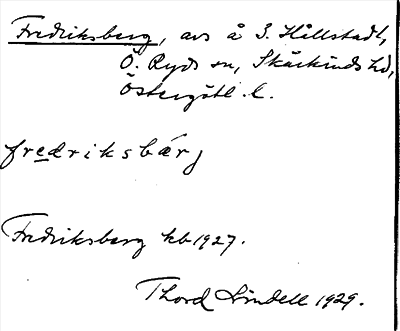 Fredriksberg, avs å 3. Hållstadt,
Ö. Ryds sn, Skärkinds hd,
Östergötl. l.
fredriksbärj
Fredriksberg kb 1927.
Thord Lindell 1929.